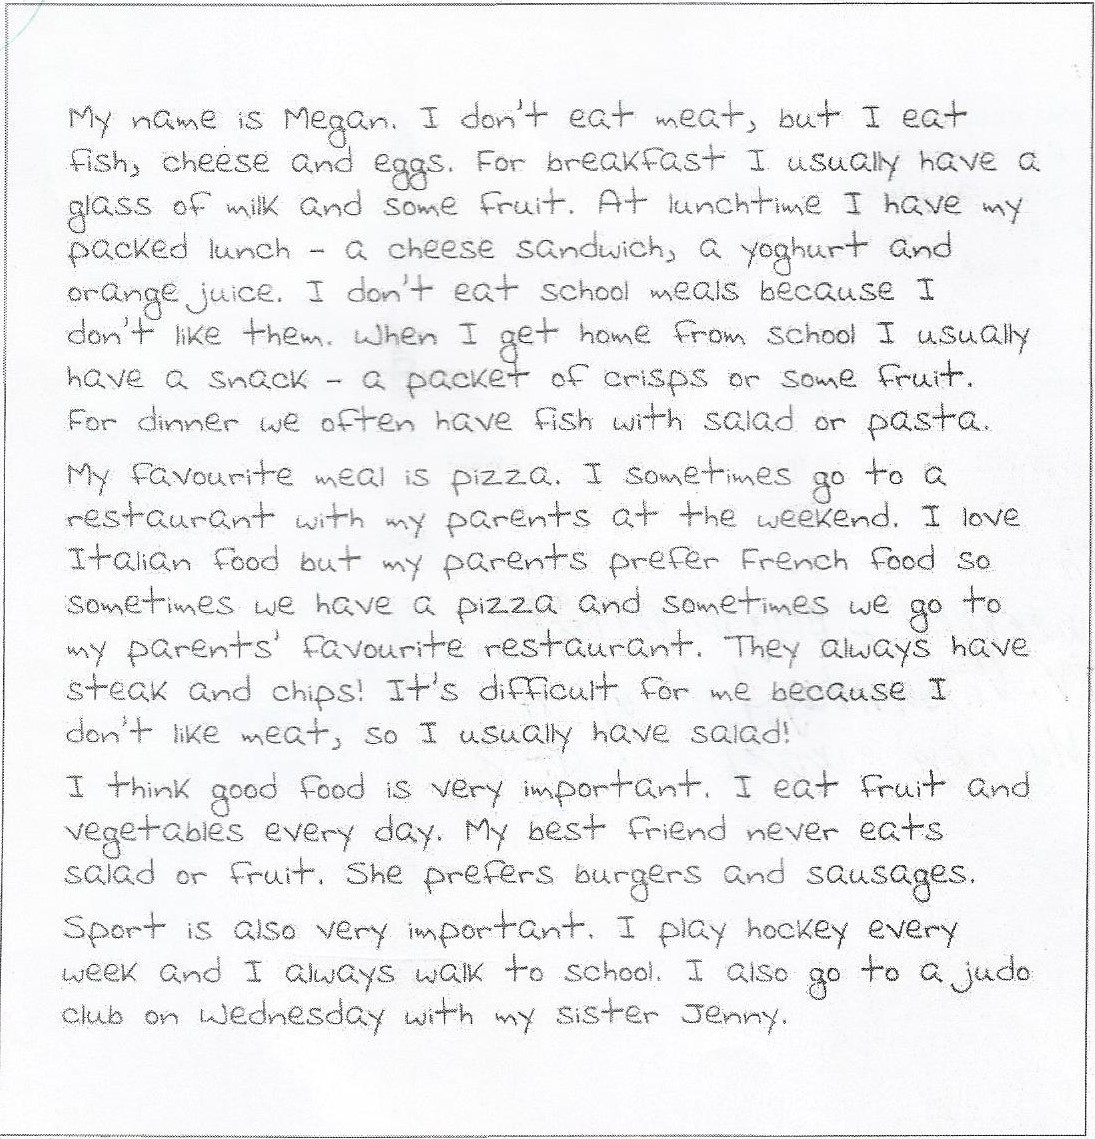 My name is Megan. I don't eat meat, but I eat
fish, cheese and eggs. For breakfast I usually have a
glass of milk and some fruit. At lunchtime I have my
packed lunch – a cheese sandwich, a yoghurt and
orange juice. I don't eat school meals because I
don't like them. When I get home from school I usually
have a snack – a packet of crisps or some fruit.
For dinner we often have fish with salad or pasta.
My favourite meal is pizza. I sometimes go to a
restaurant with my parents at the weekend. I love
Italian food but my parents prefer French food so
sometimes we have a pizza and sometimes we go to
my parents' favourite restaurant. They always have
steak and chips! It's difficult for me because I
don't like meat, so I usually have salad!
I think good food is very important. I eat fruit and
vegetables every day. My best friend never eats
salad or fruit. She prefers burgers and sausages.
Sport is also very important. I play hockey every
week and I always walk to school. I also go to a judo
club on Wednesday with my sister Jenny.